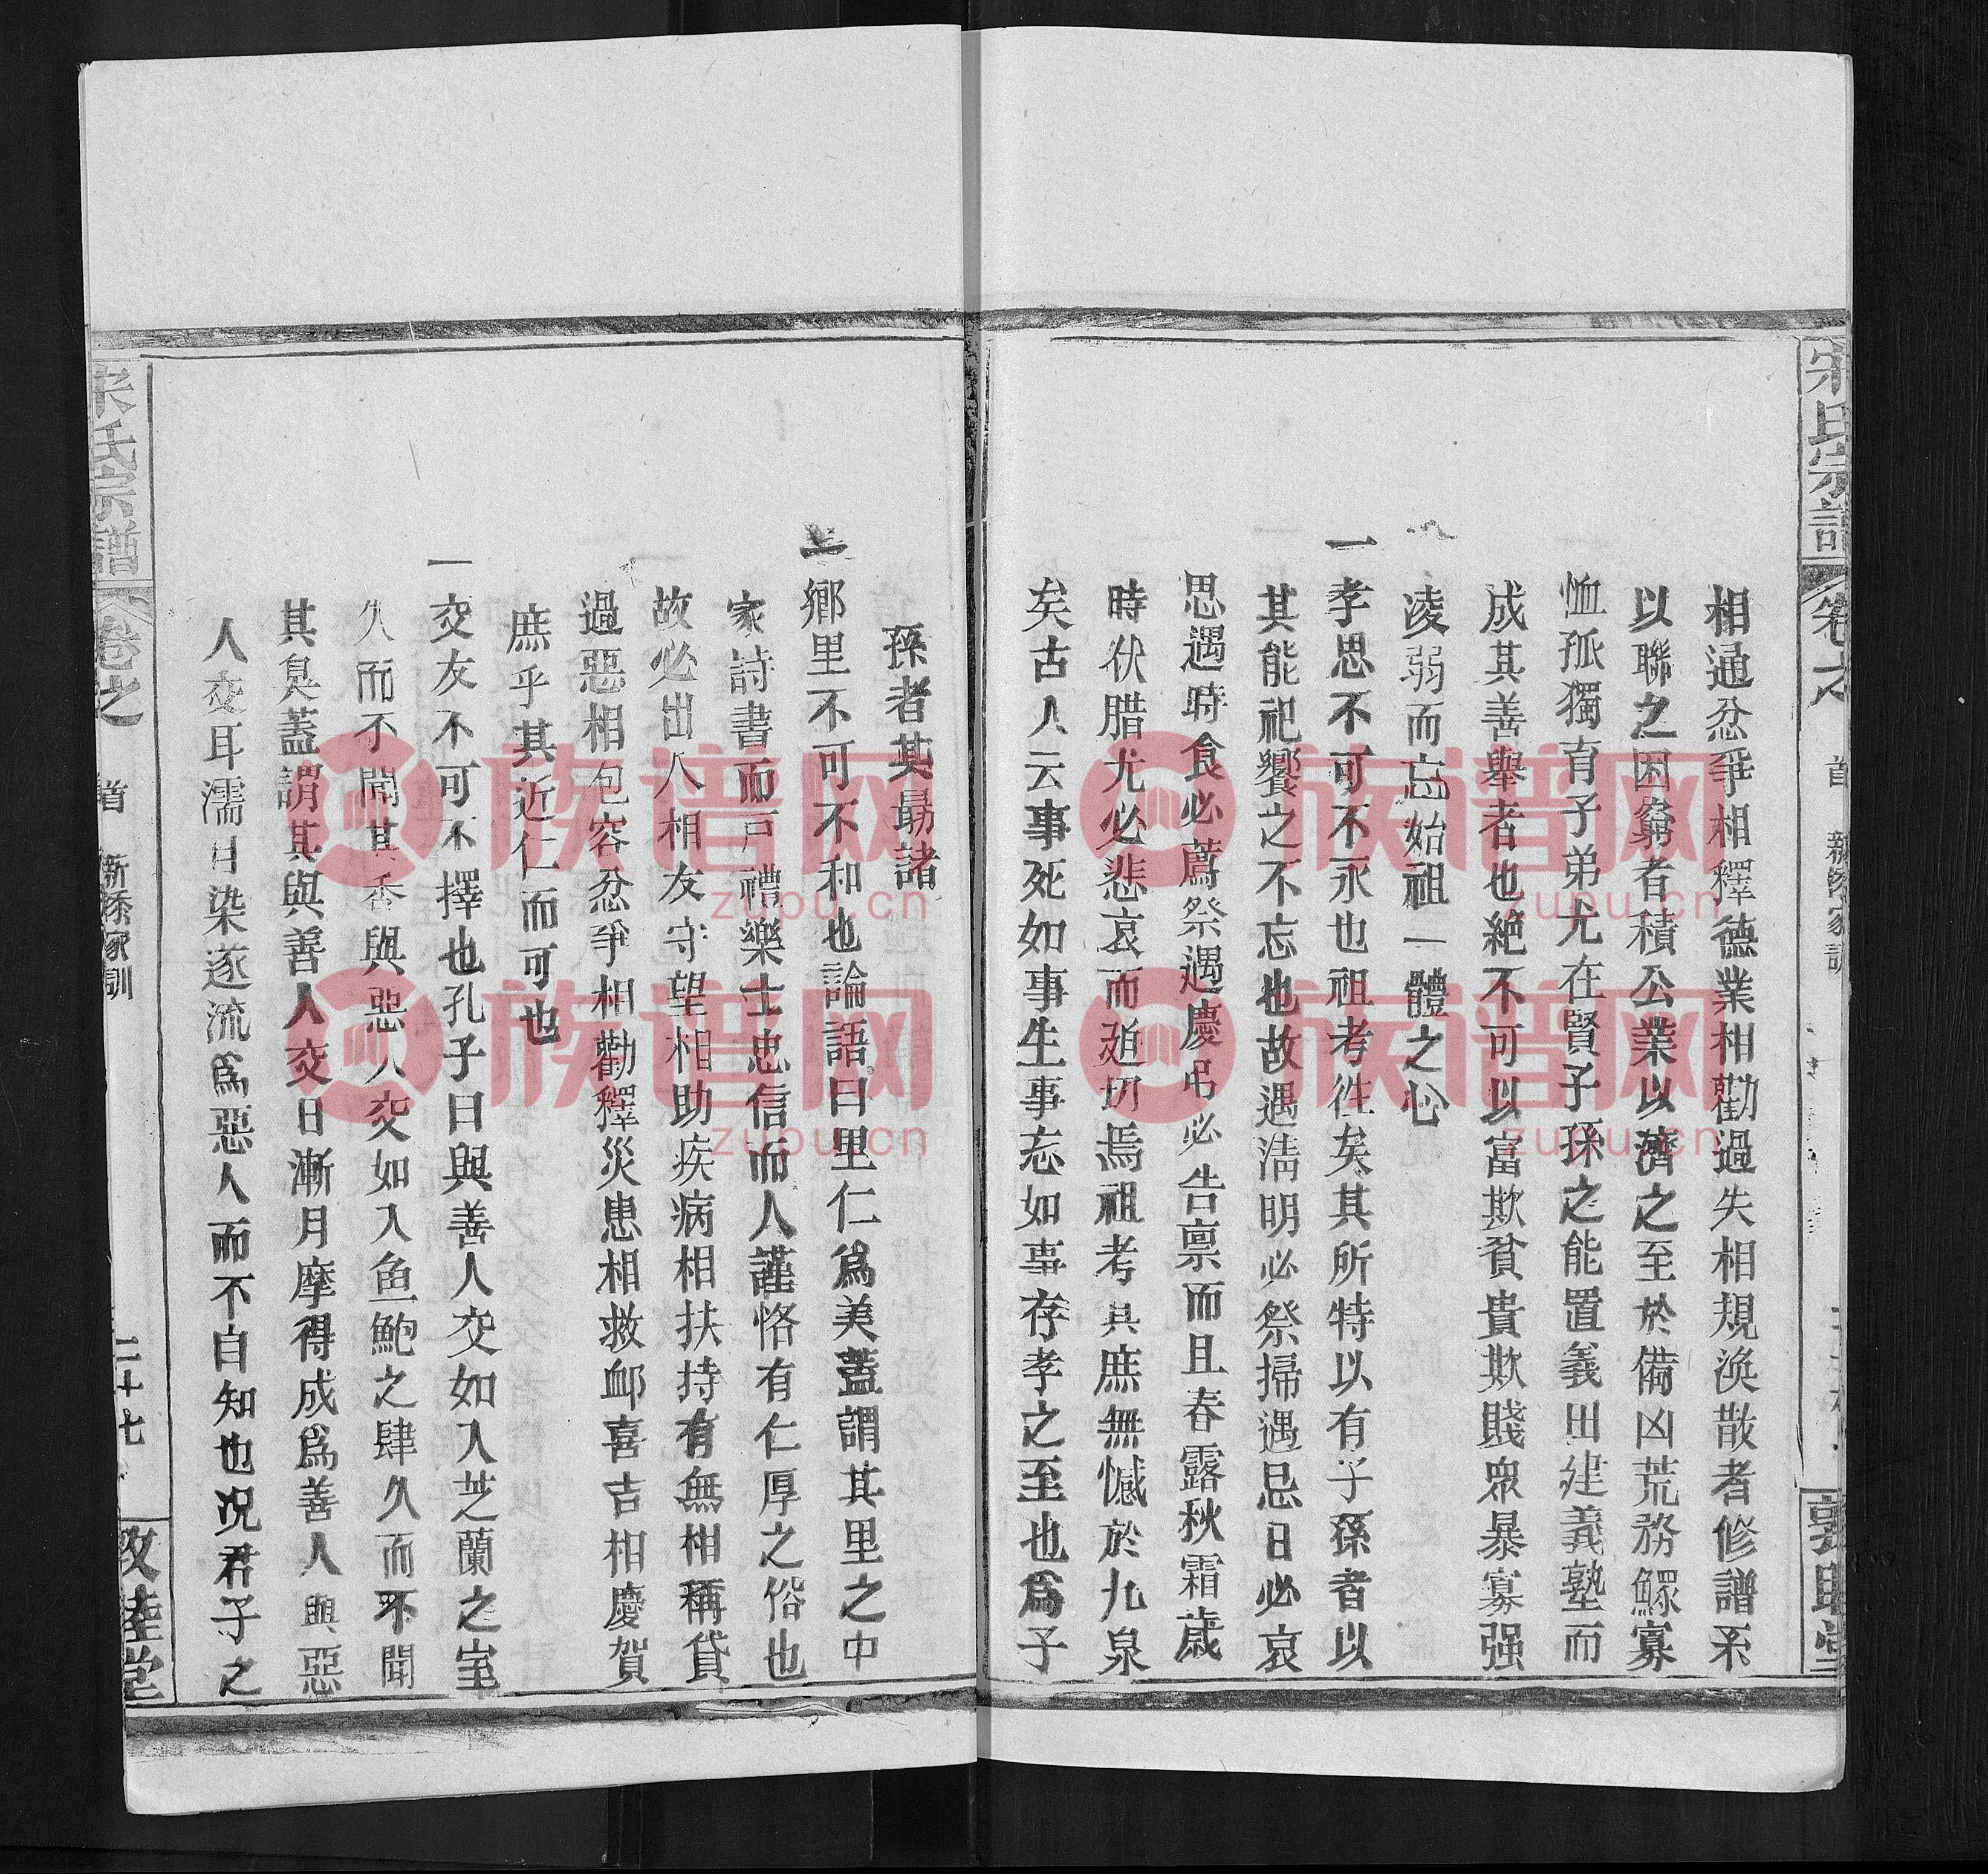 宋氏宗譜
卷之
首
新添家訓
敦睦堂
相通忿爭相釋德業相勸過失相規渙散者修譜系
以聯之困窮者積公業以濟之至於備凶荒務鰥寡
恤孤獨育子弟尤在賢子孫之能置義田建義塾而
成其善舉者也絕不可以富欺貧貴欺賤眾暴寡强
凌弱而忘始祖一體之心
一孝思不可不永也祖考往矣其所特以有子孫者以
其能祀饗之不忘也故遇淸明必祭掃遇忌日必哀
思遇時食必薦祭遇慶弔必告禀而且春露秋霜歲
時伏腊尤必悲哀而廹切焉祖考其庶無憾於九泉
矣古人云事死如事生事忘如事存孝之至也爲子
孫者其勗諸
一鄉里不可不和也論語曰里仁爲美蓋謂其里之中
家詩書而戶禮樂士忠信而人謹恪有仁厚之俗也
故必出入相友守望相助疾病相扶持有無相稱貸
過惡相包容忿爭相勸釋災患相救卹喜吉相慶賀
庶乎其近仁而可也
一交友不可不擇也孔子曰與善人交如入芝蘭之室
久而不聞其香與惡人交如入鱼鮑之肆久而不聞
其臭蓋謂其與善人交日漸月摩得成爲善人與惡
人交耳濡日染遂流爲惡人而不自知也况君子之
宋氏宗譜
卷之
首
新添家訓
二十七
敦睦堂
族谱网
zupu.cn
族谱网
zupu.cn
族谱网
zupu.cn
族谱网
zupu.cn